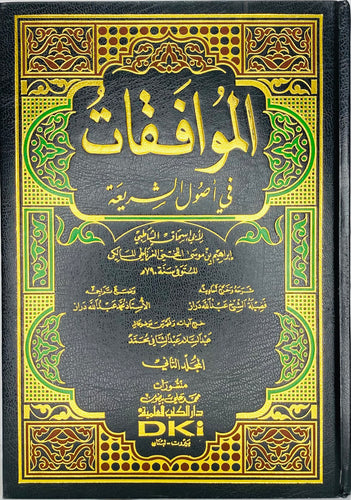 الموافقات
في أصول الشريعة
لأبي إسحاق الشاطبي
إبراهيم بن موسى اللخمي الغرناطي المالكي
المتوفى سنة ٧٩٠هـ
شرحه وخرج أحاديثه
فضيلة الشيخ عبد الله دراز
وضع تراجمه
الأستاذ محمد عبد الله دراز
خرج آياته وفهرس موضوعاته
عبد السلام عبد الشافي محمد
المجلد الثاني
منشورات
محمد علي بيضون
دار الكتب العلمية
DKi
بيروت - لبنان